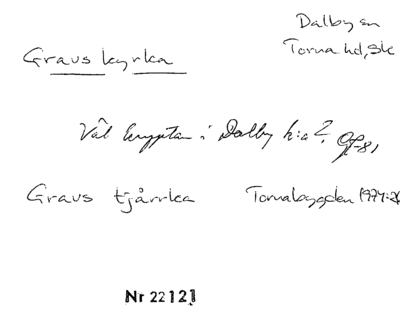 Dalby sn
Torna hd, Sk
Gravs kyrka
Väl kryptan i Dalby k:a?
Gravs tjårrka
Tornabygden 1974:2
Nr 22121